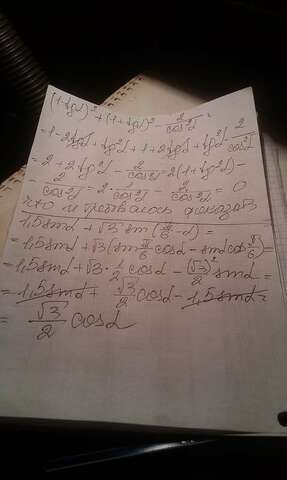 (1-tgα)² + (1+tgα)² - 2/cos²α =
= 1 - 2tgα + tg²α + 1 + 2tgα + tg²α - 2/cos²α =
= 2 + 2tg²α - 2/cos²α = 2(1+tg²α) -
- 2/cos²α = 2 · 1/cos²α - 2/cos²α = 0
что и требовалось доказать
1,5sinα + √3 sin(π/6 - α) =
= 1,5sinα + √3(sin π/6 cosα - sinα cos π/6) =
= 1,5sinα + √3 · 1/2 cosα - (√3)²/2 sinα =
= 1,5sinα + √3/2 cosα - 1,5sinα =
= √3/2 cosα